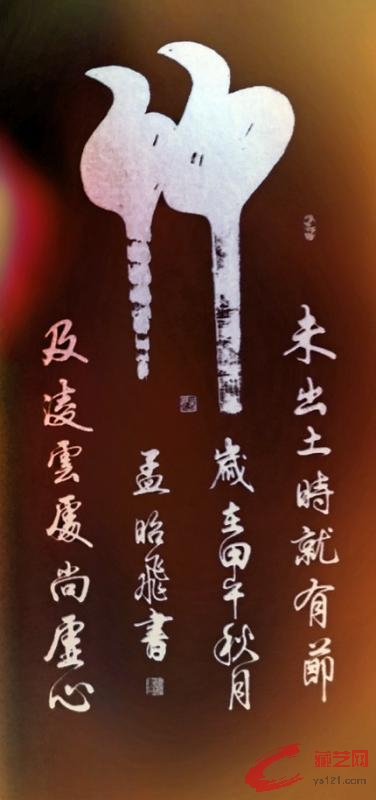 竹
未出土時就有節
歲在甲午秋月
孟昭飛書
及凌雲處尚虛心
藏艺网
ys121.com